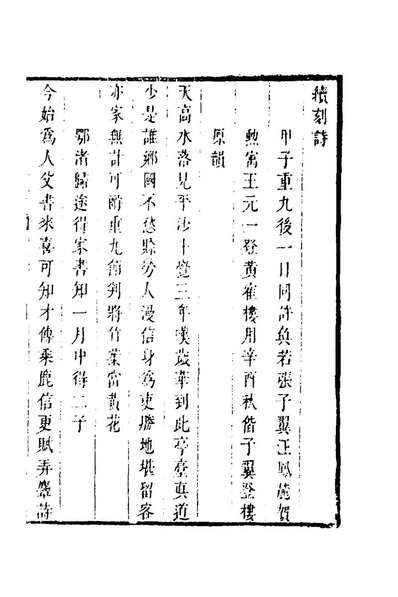 續刻詩
甲子重九後一日同許奐若張子翼汪鳳麓賀
勲寓王元一登黃崔樓用辛酉秋偕子翼登樓
原韻
天高水落見平沙十覺三年嘆歲華到此亭臺真道
少是誰鄉國不愁賒勞人漫信身為吏勝地堪留客
亦家無計可酬重九節判將竹葉當黃花
鄂渚歸途得家書知一月中得二子
今始為人父書來喜可知才傳乘鹿信更賦弄麞詩